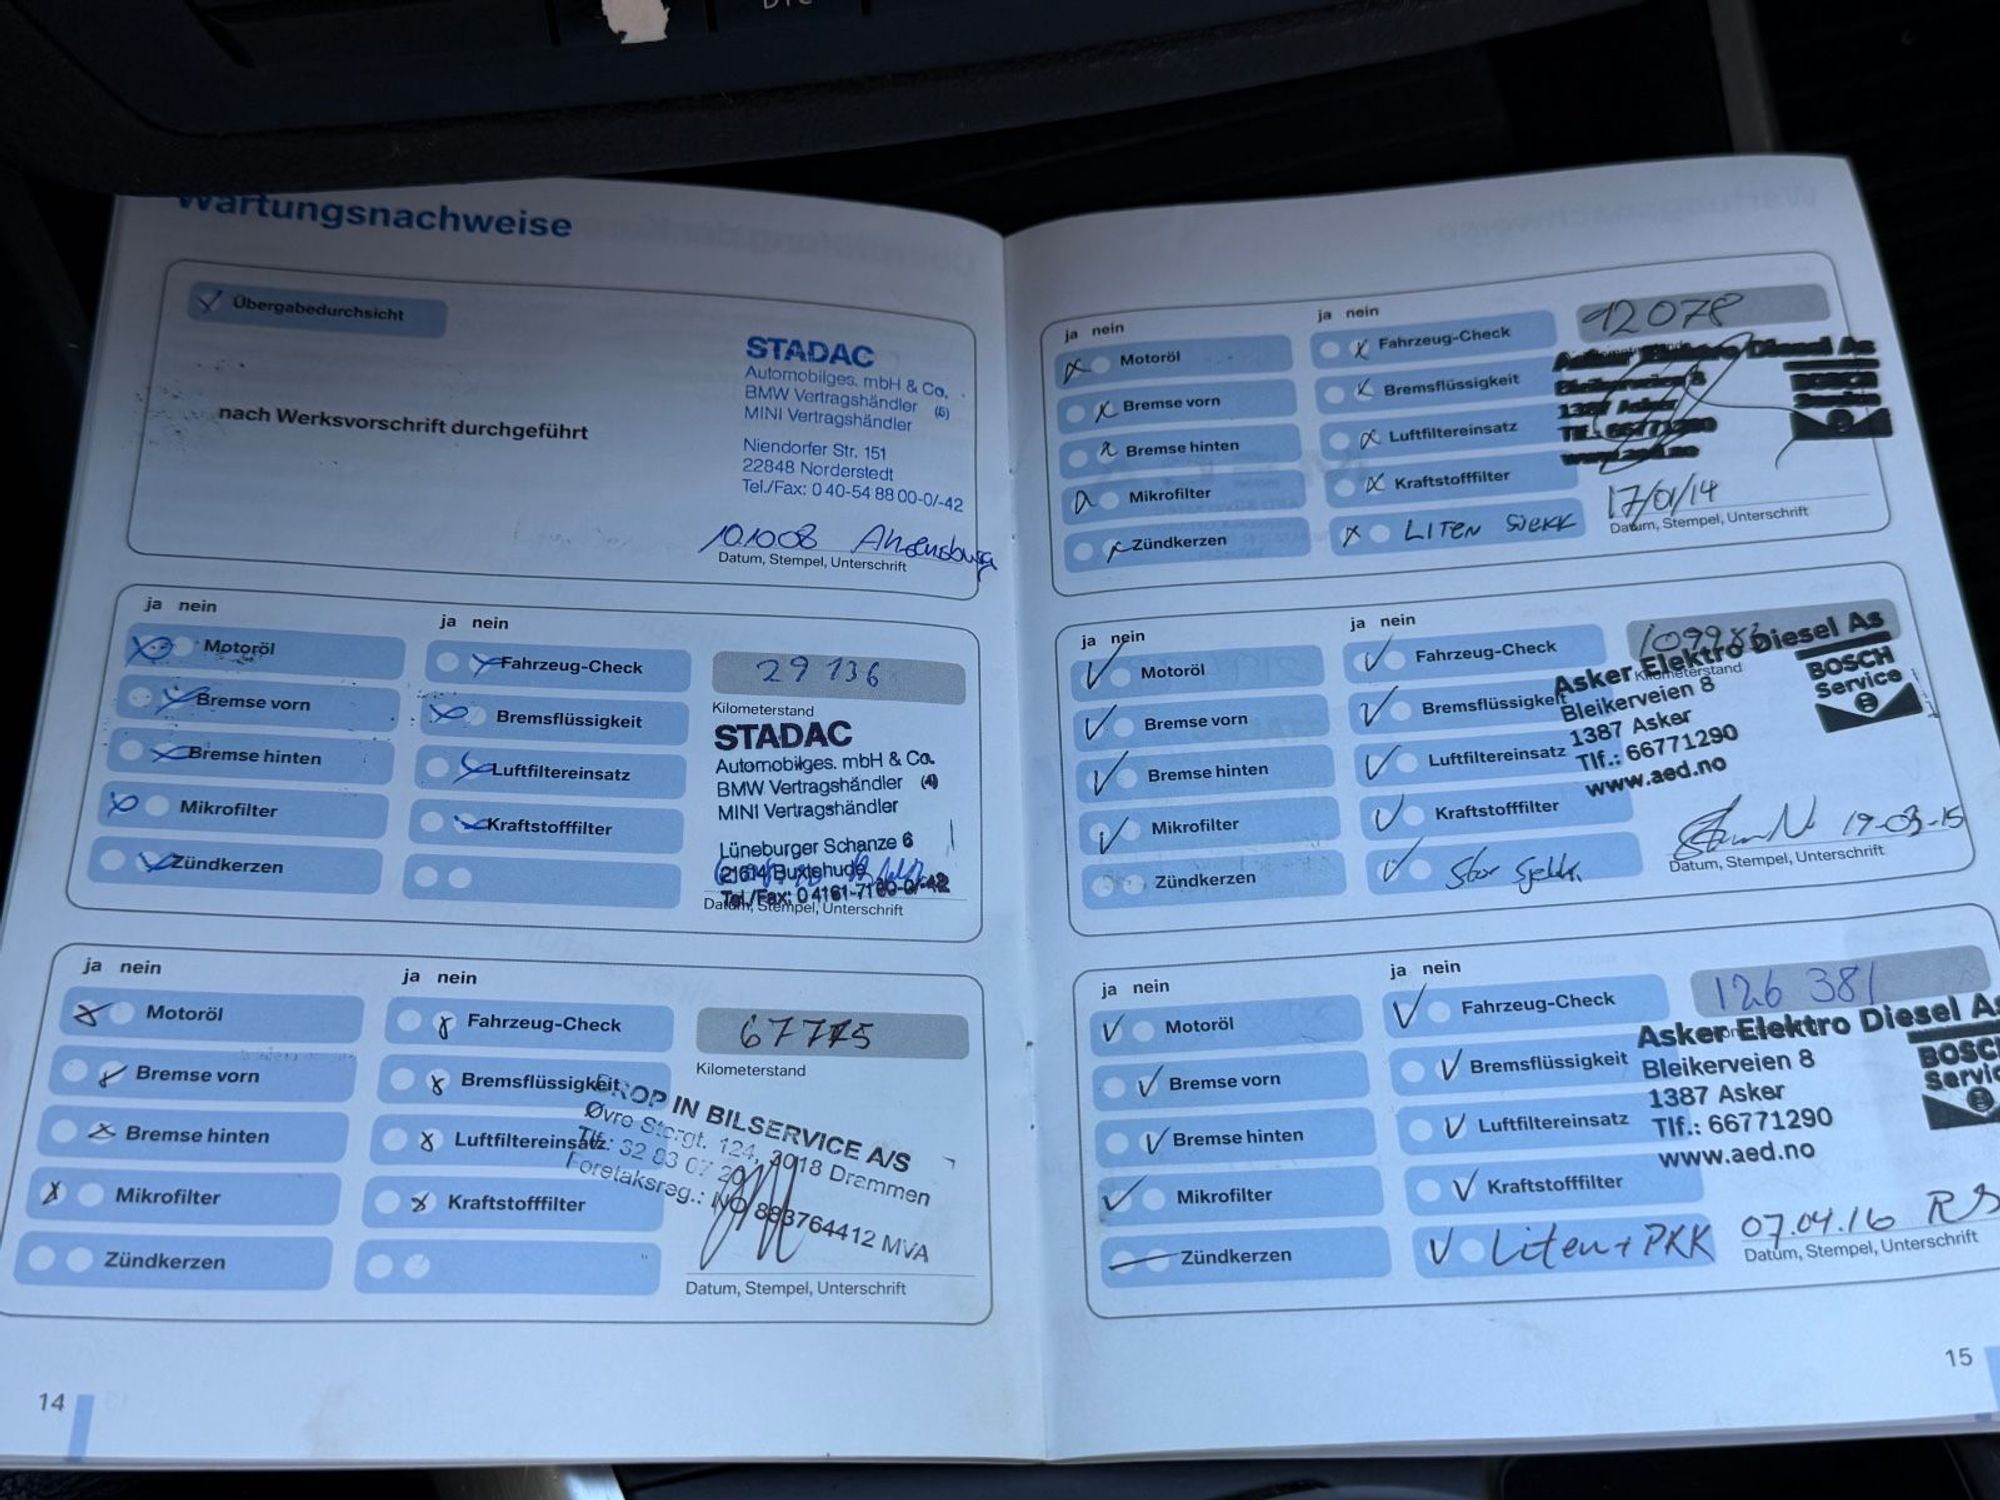 Wartungsnachweise
Übergabedurchsicht
nach Werksvorschrift durchgeführt
STADAC
Automobilges. mbH & Co.
BMW Vertragshändler (5)
MINI Vertragshändler
Niendorfer Str. 151
22848 Norderstedt
Tel./Fax: 0 40-54 88 00-0/-42
10.10.08
Datum, Stempel, Unterschrift
ja nein
ja nein
Motoröl
Fahrzeug-Check
29 136
Bremse vorn
Bremsflüssigkeit
Kilometerstand
Bremse hinten
Luftfiltereinsatz
Mikrofilter
Kraftstofffilter
Zündkerzen
STADAC
Automobilges. mbH & Co.
BMW Vertragshändler (4)
MINI Vertragshändler
Lüneburger Schanze 6
21614 Buxtehude
Tel./Fax: 0 4161-71 60-0/-42
Datum, Stempel, Unterschrift
ja nein
ja nein
Motoröl
Fahrzeug-Check
Bremse vorn
Bremsflüssigkeit
Kilometerstand
Bremse hinten
Luftfiltereinsatz
Mikrofilter
Kraftstofffilter
Zündkerzen
DROP IN BILSERVICE A/S
Øvre Storgt. 124, 3018 Drammen
Tlf.: 32 83 07 20
Foretaksreg.: NO 883764412 MVA
Datum, Stempel, Unterschrift
14
ja nein
ja nein
Motoröl
Fahrzeug-Check
92078
Bremse vorn
Bremsflüssigkeit
Bremse hinten
Luftfiltereinsatz
Mikrofilter
Kraftstofffilter
Zündkerzen
LITEN SJEKK
Asker Elektro Diesel As
Bleikerveien 8
1387 Asker
Tlf.: 66771290
www.aed.no
BOSCH
Service
17/01/14
Datum, Stempel, Unterschrift
ja nein
ja nein
Motoröl
Fahrzeug-Check
Bremse vorn
Bremsflüssigkeit
Kilometerstand
Bremse hinten
Luftfiltereinsatz
Mikrofilter
Kraftstofffilter
Zündkerzen
Stor Sjekk.
Asker Elektro Diesel As
Bleikerveien 8
1387 Asker
Tlf.: 66771290
www.aed.no
BOSCH
Service
19-03-15
Datum, Stempel, Unterschrift
ja nein
ja nein
Motoröl
Fahrzeug-Check
126 381
Bremse vorn
Bremsflüssigkeit
Bremse hinten
Luftfiltereinsatz
Mikrofilter
Kraftstofffilter
Zündkerzen
Liten + PKK
Asker Elektro Diesel As
Bleikerveien 8
1387 Asker
Tlf.: 66771290
www.aed.no
07.04.16 RS
Datum, Stempel, Unterschrift
15